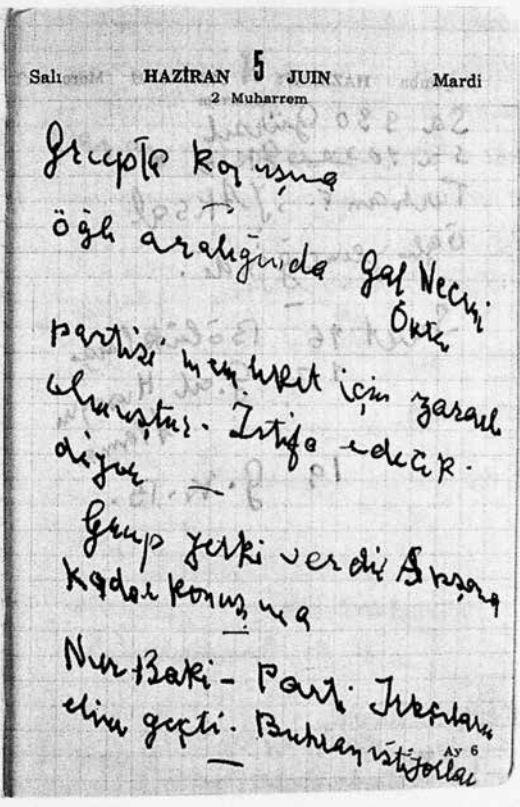 Salı HAZİRAN 5 JUIN Mardi
2 Muharrem
Grupta konuşma
öğle aralığında Gal Necmi
Ökten
partisi memleket için zararlı
olmuştur. İstifa edecek.
diyor
Grup yetki verdi Akşama
kadar konuşma
Nur Baki - Parti
eline geçti. Buhran istifalar
Ay 6